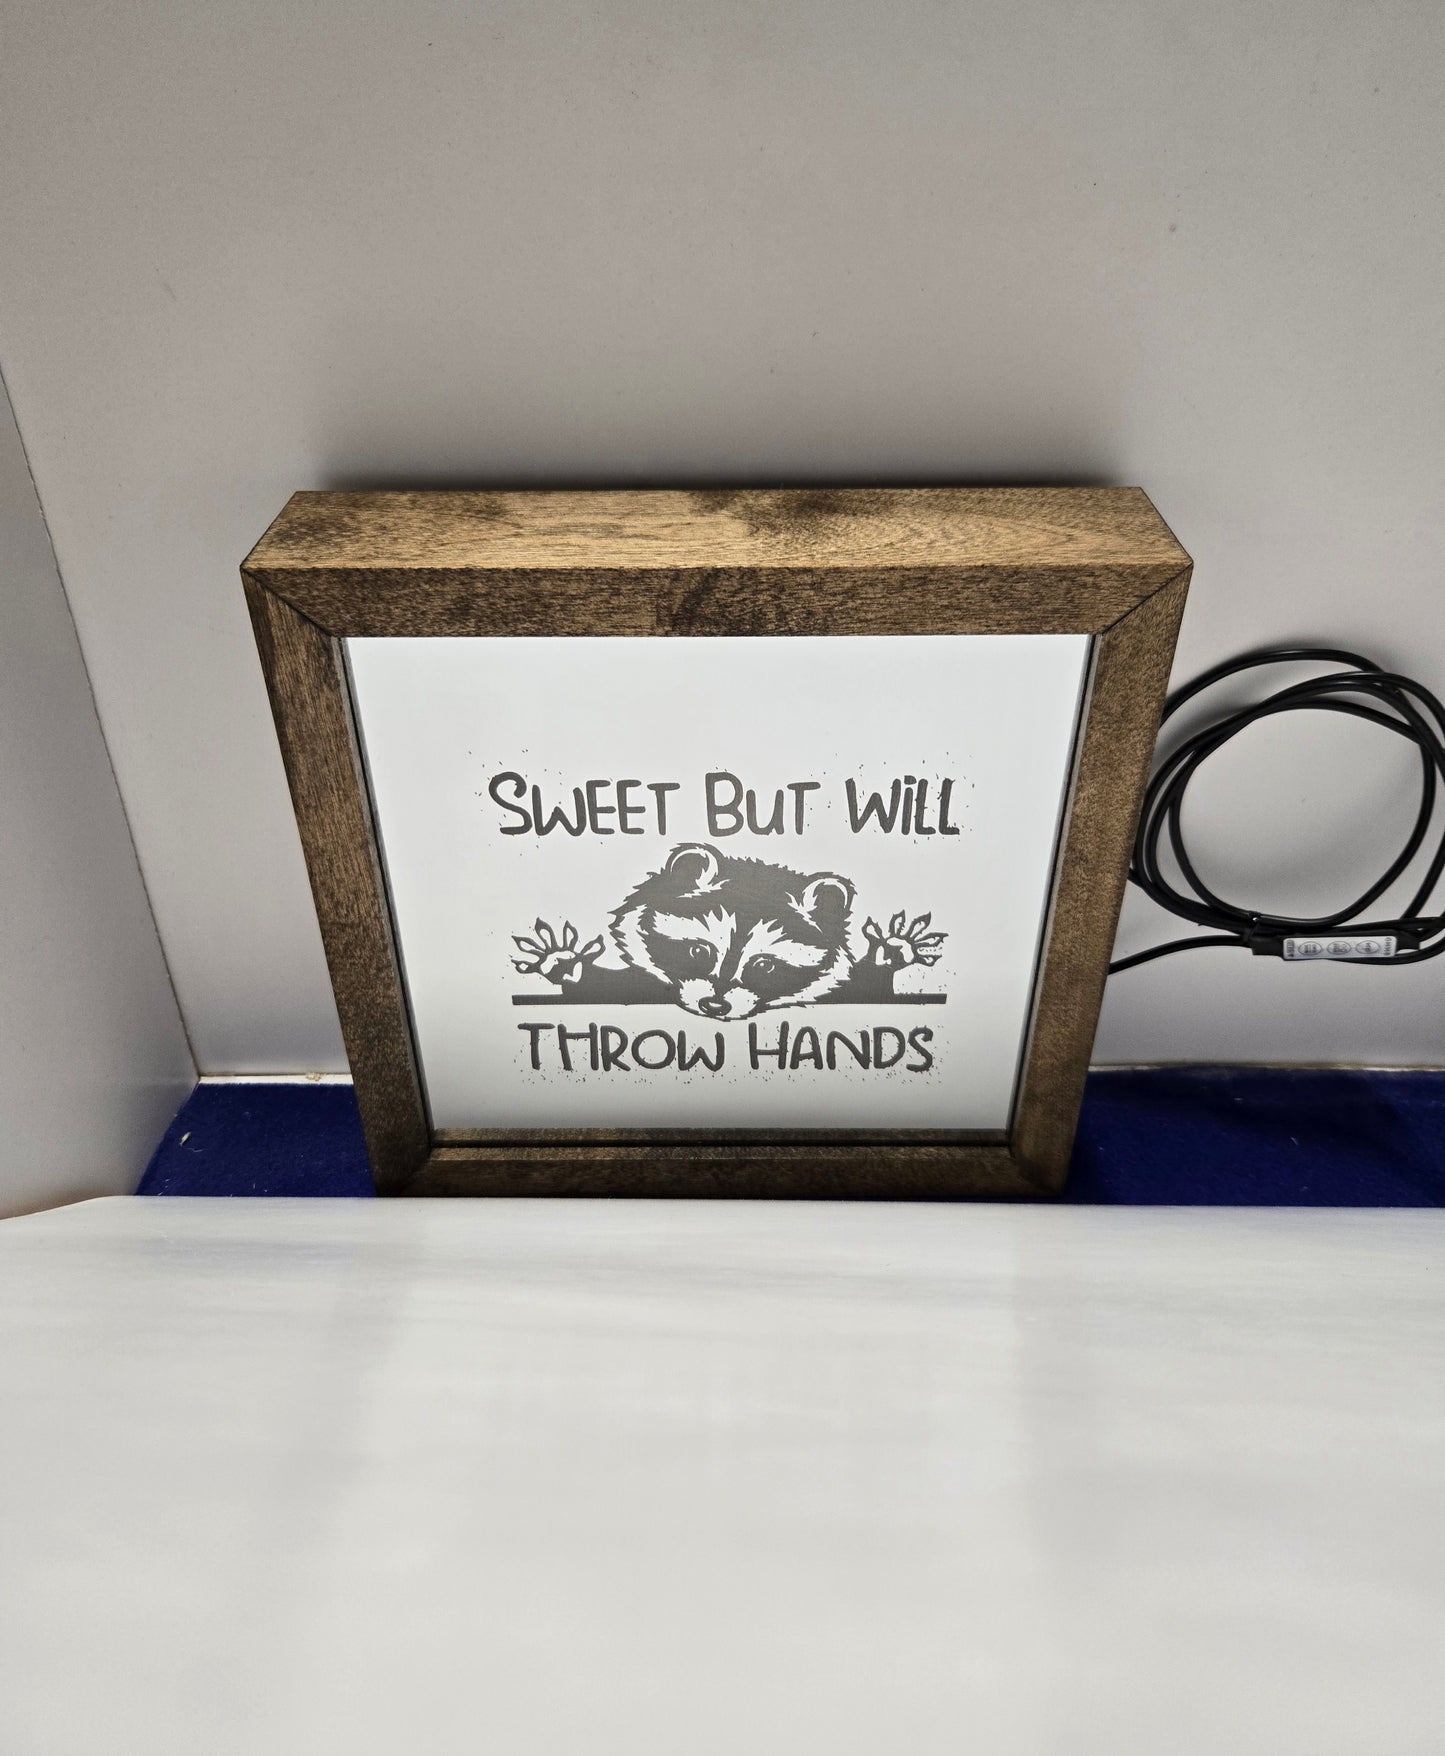 SWEET BUT WiLL
THROW HANDS